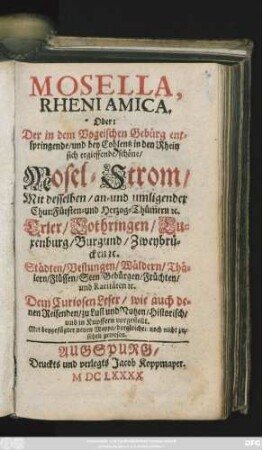 MOSELLA,
RHENI AMICA,
Oder:
Der in dem Vogeischen Gebürg ent-
springende/und bey Coblentz in den Rhein
sich ergiessende/schöne/
Mosel-Strom/
Mit desselben/an-und umligender
Chur-Fürsten-und Hertzog-Thümern ꝛc.
Trier/Lothringen/Lu-
xenburg/Burgund/Zweybrü-
cken ꝛc.
Städten/Vestungen/Wäldern/Thä-
lern/Flüssen/Seen Gebürgen/Früchten/
und Raritäten ꝛc.
Dem Curiosen Leser/wie auch de-
nen Reisenden/zu Lust und Nutzen/Historisch/
und in Kupffern vorgestellt.
Mit beygefügter neuen Mappa/dergleichen noch nicht zu
sehen gewesen.
AUGSPURG/
Druckts und verlegts Jacob Koppmayer.
M DC LXXXX